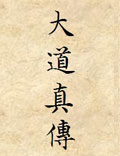 大道真傳